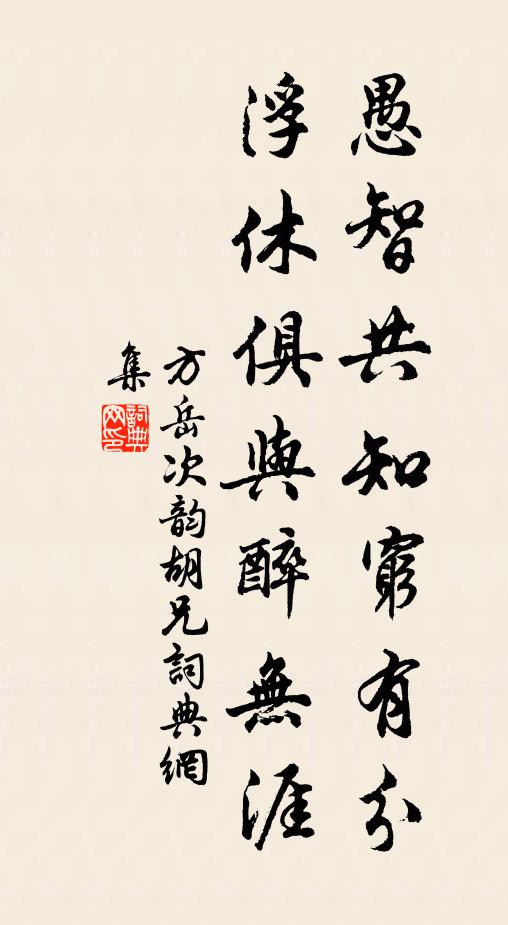 愚智共知窮有分
浮休俱與醉無涯
方岳次韵胡兄詞典網
集
詞典网印